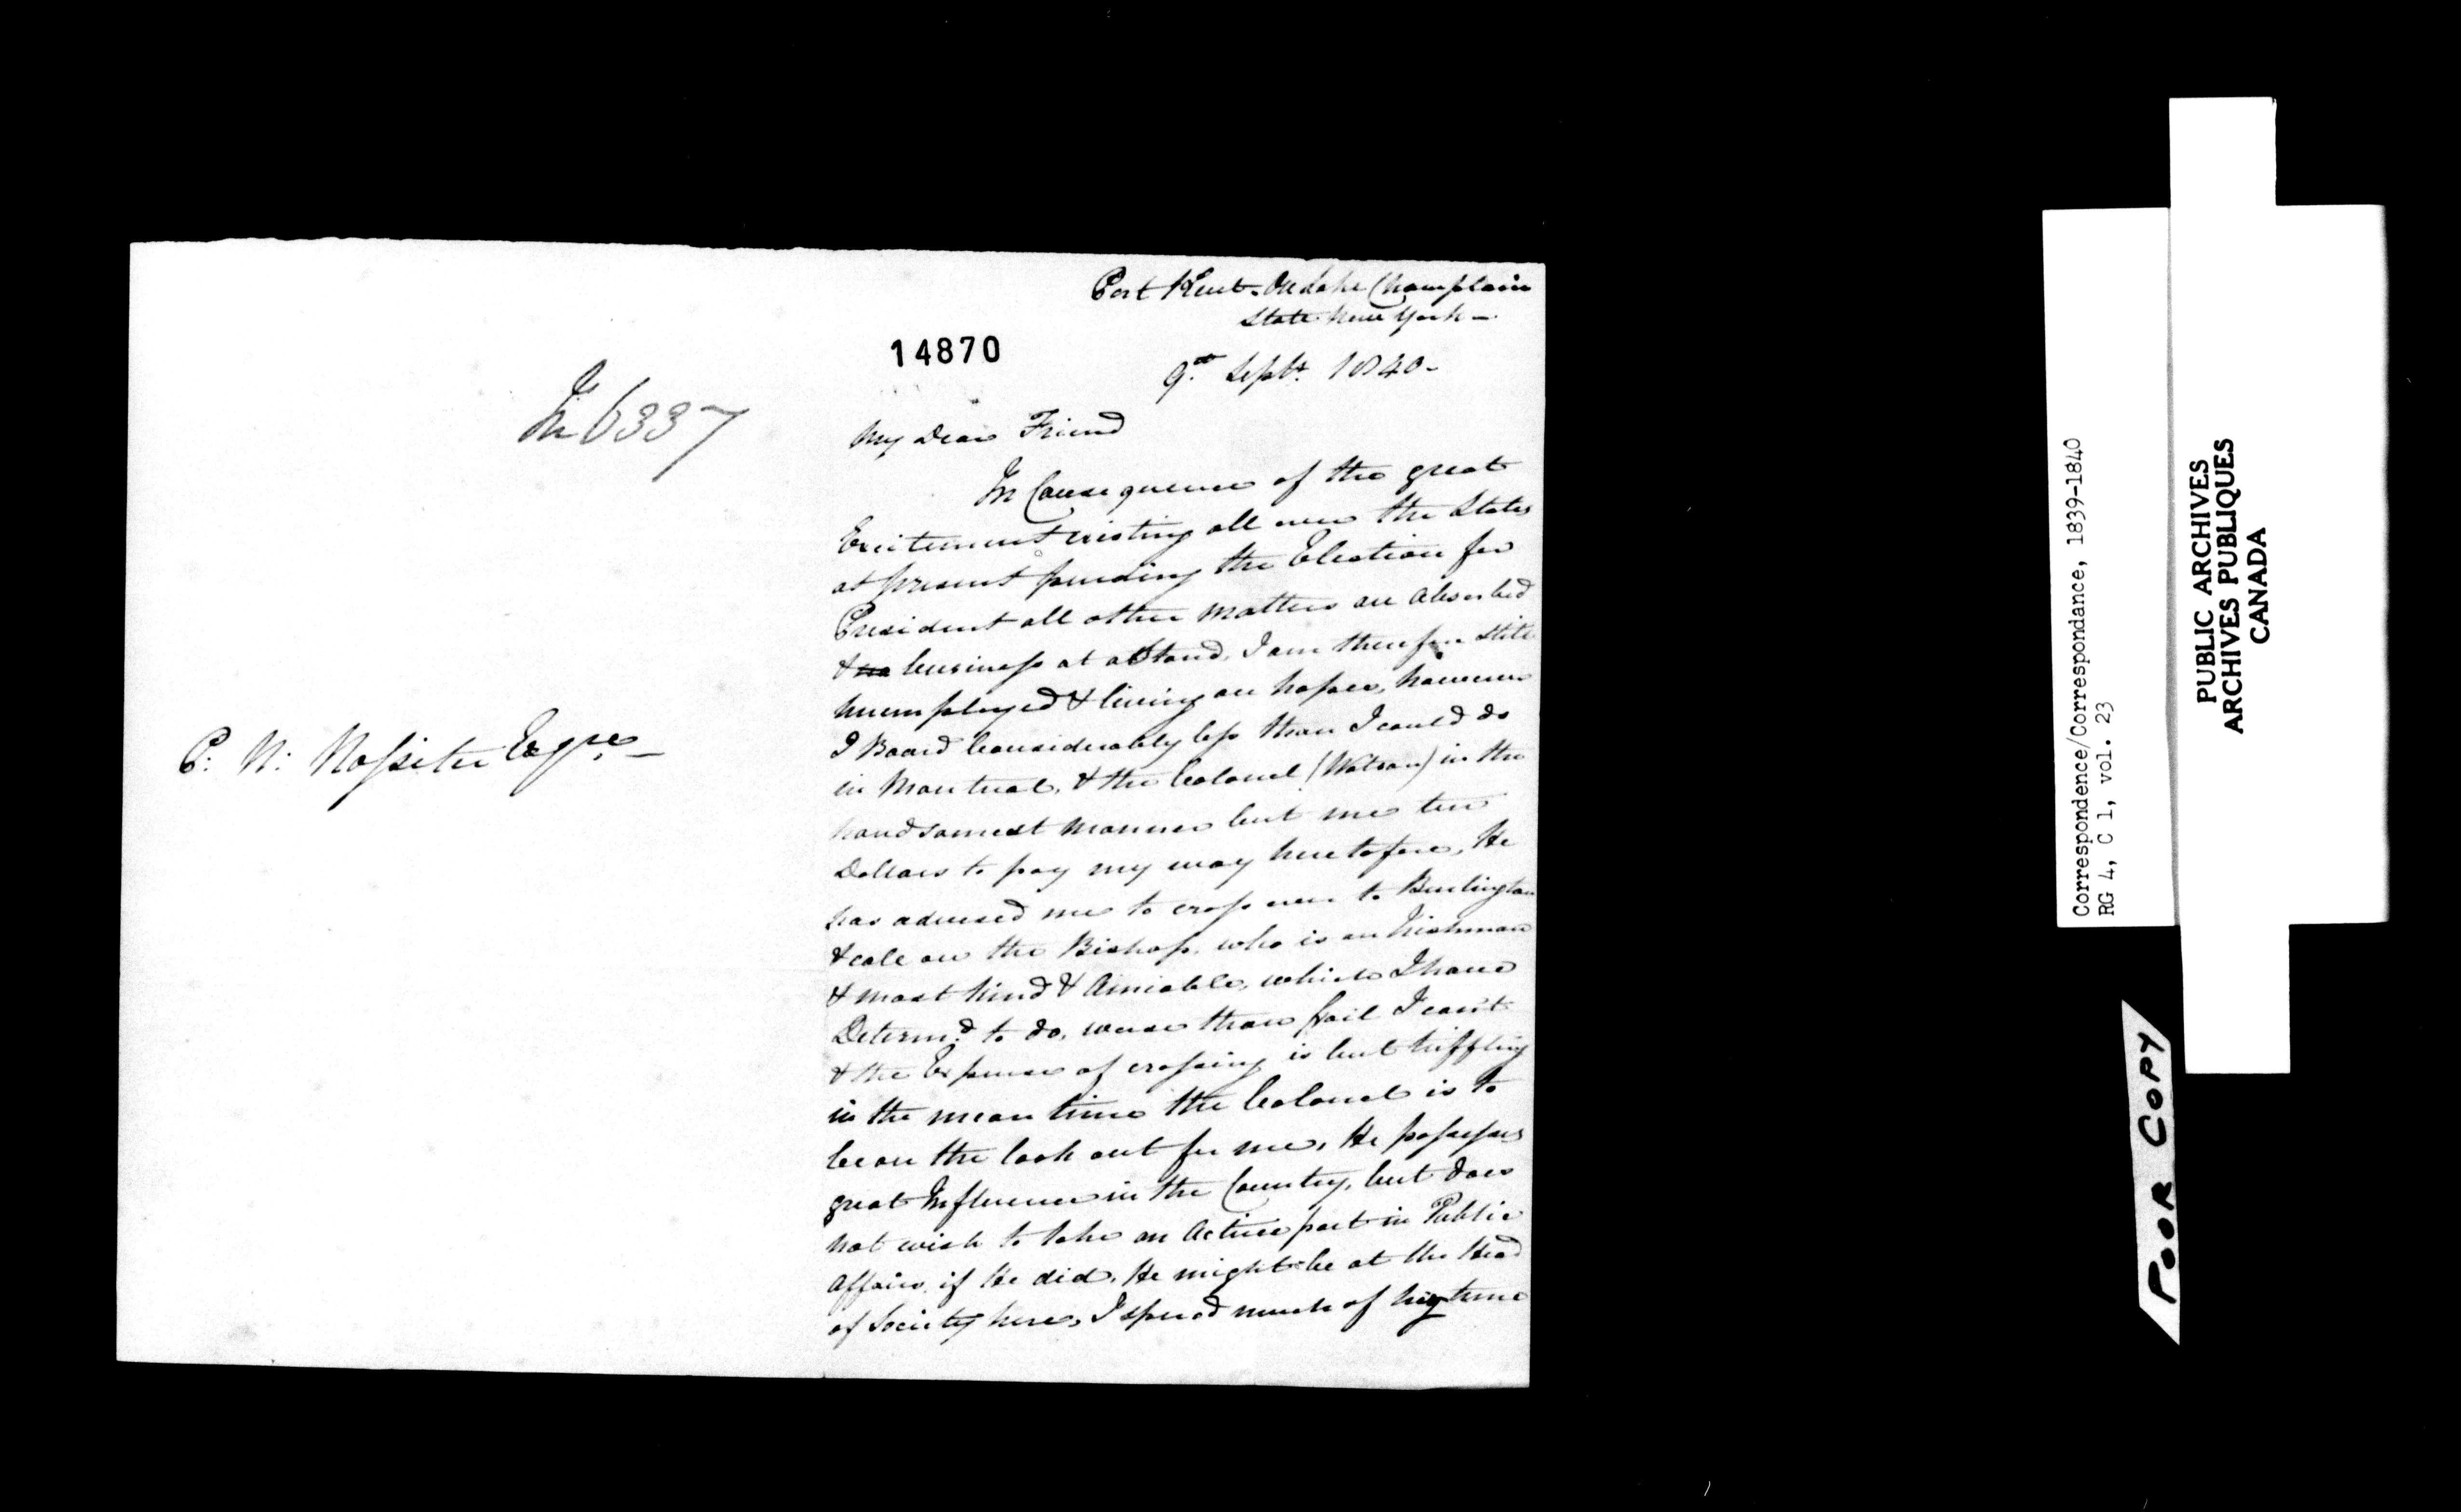 Port Kent. On Lake Champlain
State New York -
14870
9th Septr. 1840-
My Dear Friend
In Consequence of the great
Excitement existing all over the States
at present pending the Election for
President all other matters are absorbed
& no business at a Stand, I am therefore still
unemployed & living on hopes, however
I Board Considerably less than I could do
in Montreal, & the Colonel (Watson) in the
handsomest manner lent me ten
Dollars to pay my way heretofore, He
has advised me to cross over to Burlington
& call on the Bishop, who is an Irishman
& most kind & Amiable, which I have
Determd. to do, worse than fail I can't
& the Expense of crossing is but triffling
in the mean time the Colonel is to
be on the look out for me, He possesses
great Influence in the Country, but does
not wish to take an Active part in Public
Affairs, if He did, He might be at the Head
of Society here, I spend much of my time
6337
P: N: Rossiter Esqre. -
Correspondence/Correspondance, 1839-1840
RG 4, C 1, vol. 23
PUBLIC ARCHIVES
ARCHIVES PUBLIQUES
CANADA
POOR COPY